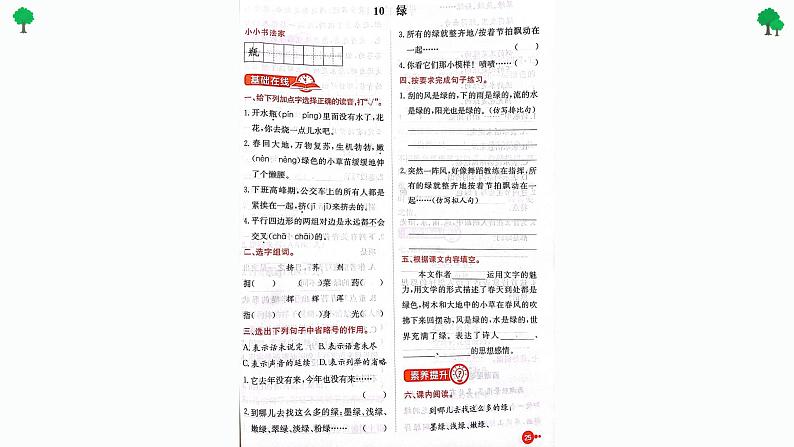 10 绿
小小书法家
瓶
基础在线
一、给下列加点字选择正确的读音,打“√”。
1. 开水瓶(pín píng)里面没有水了,花
花,你去烧一点儿水吧。
2. 春回大地,万物复苏,生机勃勃,嫩
(nèn nèng)绿色的小草苗缓缓地伸
了个懒腰。
3. 下班高峰期,公交车上的所有人都是
紧挨在一起,挤(jī jǐ)来挤去的。
4. 平行四边形的两组对边是永远都不会
交叉(chā chāi)的。
二、选字组词。
挤 荠 剂
拥( ) ( )菜 药( )
挥 辉 浑
指( ) ( )身 光( )
三、选出下列句子中省略号的作用。
A. 表示话未说完 B. 表示语意未尽
C. 表示声音的延续 D. 表示列举的省略
1. 它去年没有来,今年也没有来……
( )
2. 到哪儿去找这么多的绿:墨绿、浅绿、
嫩绿、翠绿、淡绿、粉绿…… ( )
3. 所有的绿就整齐地/按着节拍飘动在
一起…… ( )
4. 你看它们那小模样!啧啧…… ( )
四、按要求完成句子练习。
1. 刮的风是绿的,下的雨是绿的,流的水
是绿的,阳光也是绿的。(仿写排比句)
2. 突然一阵风,好像舞蹈教练在指挥,所
有的绿就整齐地按着节拍飘动在一
起……(仿写拟人句)
五、根据课文内容填空。
本文作者______运用文字的魅
力,用文字的形式描述了春天到处都是
绿色,树木和大地中的小草在春风的吹
拂下来回摆动,风是绿的,水是绿的,世
界充满了绿。表达了诗人______、
______、______的思想感情。
素养提升
六、课内阅读。
到哪儿去找这么多的绿:
墨绿、浅绿、嫩绿、
25